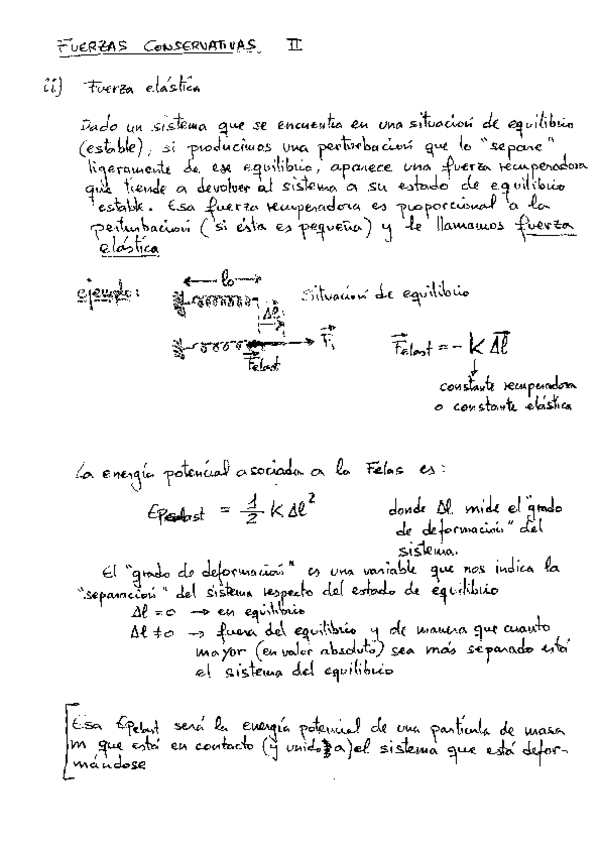 FUERZAS CONSERVATIVAS II
ii) Fuerza elástica
Dado un sistema que se encuentra en una situación de equilibrio
(estable), si producimos una perturbación que lo "separe"
ligeramente de ese equilibrio, aparece una fuerza recuperadora
que tiende a devolver al sistema a su estado de equilibrio
estable. Esa fuerza recuperadora es proporcional a la
perturbación (si ésta es pequeña) y le llamamos fuerza
elástica
ejemplo: lo Situación de equilibrio
Δl
F⃗elast F⃗ F⃗elast = - K Δl⃗
constante recuperadora
o constante elástica
La energía potencial asociada a la Felas es:
EPelast = 1/2 K Δl² donde Δl mide el "grado
de deformación" del
sistema.
El "grado de deformación" es una variable que nos indica la
"separación" del sistema respecto del estado de equilibrio
Δl = 0 → en equilibrio
Δl ≠ 0 → fuera del equilibrio y de manera que cuanto
mayor (en valor absoluto) sea más separado está
el sistema del equilibrio
Esa EPelast será la energía potencial de una partícula de masa
m que está en contacto (y unido a) el sistema que está defor-
mándose